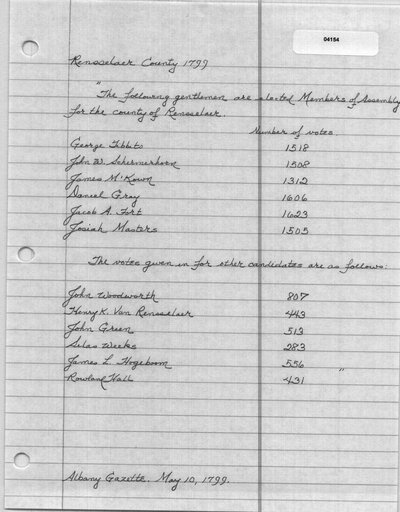 04154
Rensselaer County 1799
"The following gentlemen are elected Members of Assembly
for the county of Rensselaer.
Number of votes.
George Tibbits 1518
John W. Schermerhorn 1508
James McKown 1312
Daniel Gray 1606
Jacob A. Fort 1623
Josiah Masters 1505
The votes given in for other candidates are as follows:
John Woodworth 807
Henry K. Van Rensselaer 443
John Green 513
Silas Weeks 283
James L. Hogeboom 556 "
Rowland Hall 431
Albany Gazette. May 10, 1799.